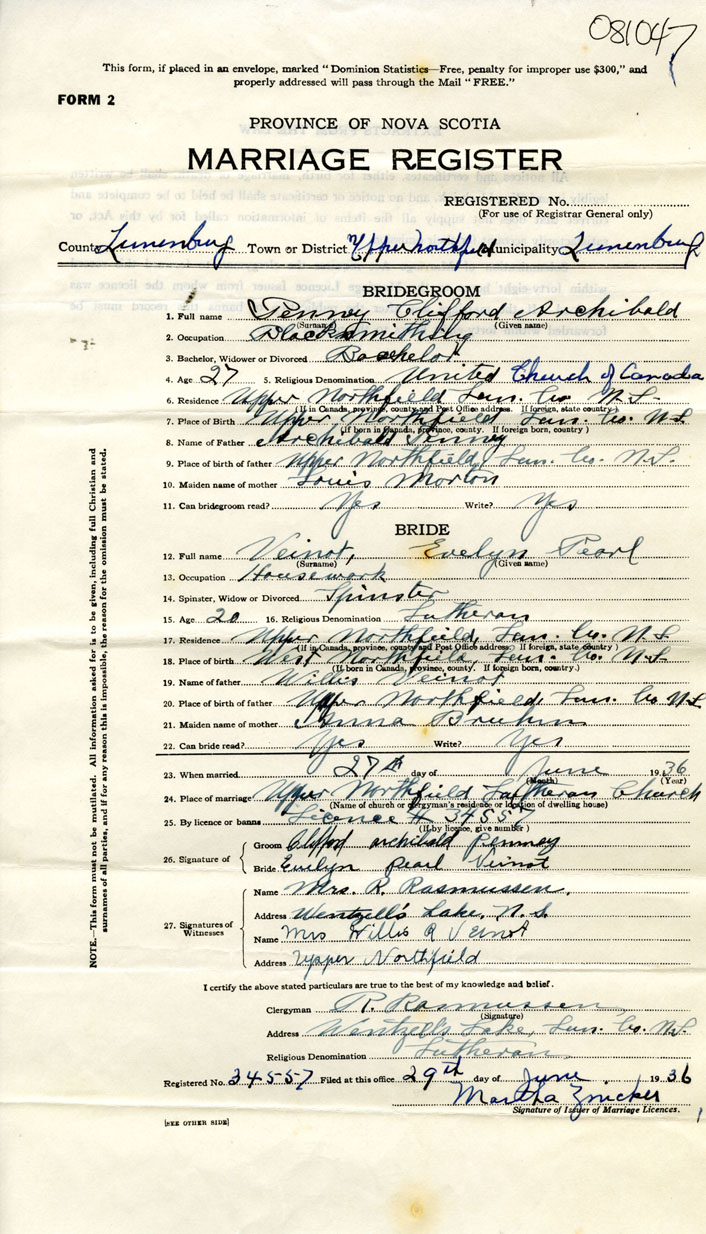 081047
This form, if placed in an envelope, marked "Dominion Statistics—Free, penalty for improper use $300," and
properly addressed will pass through the Mail "FREE."
FORM 2
PROVINCE OF NOVA SCOTIA
MARRIAGE REGISTER
REGISTERED No.
(For use of Registrar General only)
County Lunenburg Town or District Upper Northfield Municipality Lunenburg
BRIDEGROOM
1. Full name Penney Clifford Archibald
(Surname) (Given name)
2. Occupation Blacksmithing
3. Bachelor, Widower or Divorced Bachelor
4. Age 27 5. Religious Denomination United Church of Canada
6. Residence Upper Northfield Lun. Co. N.S.
(If in Canada, province, county and Post Office address. If foreign, state country)
7. Place of Birth Upper Northfield Lun. Co. N.S.
(If born in Canada, province, county. If foreign born, country)
8. Name of Father Archibald Penney
9. Place of birth of father Upper Northfield, Lun. Co. N.S.
10. Maiden name of mother Louis Morton
11. Can bridegroom read? Yes Write? Yes
BRIDE
12. Full name Veinot, Evelyn Pearl
(Surname) (Given name)
13. Occupation Housework
14. Spinster, Widow or Divorced Spinster
15. Age 20 16. Religious Denomination Lutheran
17. Residence Upper Northfield, Lun. Co. N.S
(If in Canada, province, county and Post Office address. If foreign, state country)
18. Place of birth West Northfield, Lun. Co. N.S
(If born in Canada, province, county. If foreign born, country.)
19. Name of father Willis Veinot
20. Place of birth of father Upper Northfield, Lun. Co N.S
21. Maiden name of mother Anna Bruhm
22. Can bride read? Yes Write? Yes
23. When married 27th day of June 1936
(Month) (Year)
24. Place of marriage Upper Northfield Lutheran Church
(Name of church or clergyman's residence or location of dwelling house)
25. By licence or banns Licence # 34557
(If by licence, give number)
26. Signature of
Groom Clifford archibald Penney
Bride Evelyn pearl Veinot
27. Signatures of Witnesses
Name Mrs. R. Rasmussen.
Address Wentzell's Lake, N.S.
Name Mrs Willis A Veinot
Address Upper Northfield
I certify the above stated particulars are true to the best of my knowledge and belief.
Clergyman R. Rasmussen
(Signature)
Address Wentzell's Lake, Lun. Co. N.S.
Religious Denomination Lutheran
Registered No. 34557 Filed at this office 29th day of June 1936
Martha Zwicker
Signature of Issuer of Marriage Licences.
[SEE OTHER SIDE]
NOTE.—This form must not be mutilated. All information asked for is to be given, including full Christian and
surnames of all parties, and if for any reason this is impossible, the reason for the omission must be stated.